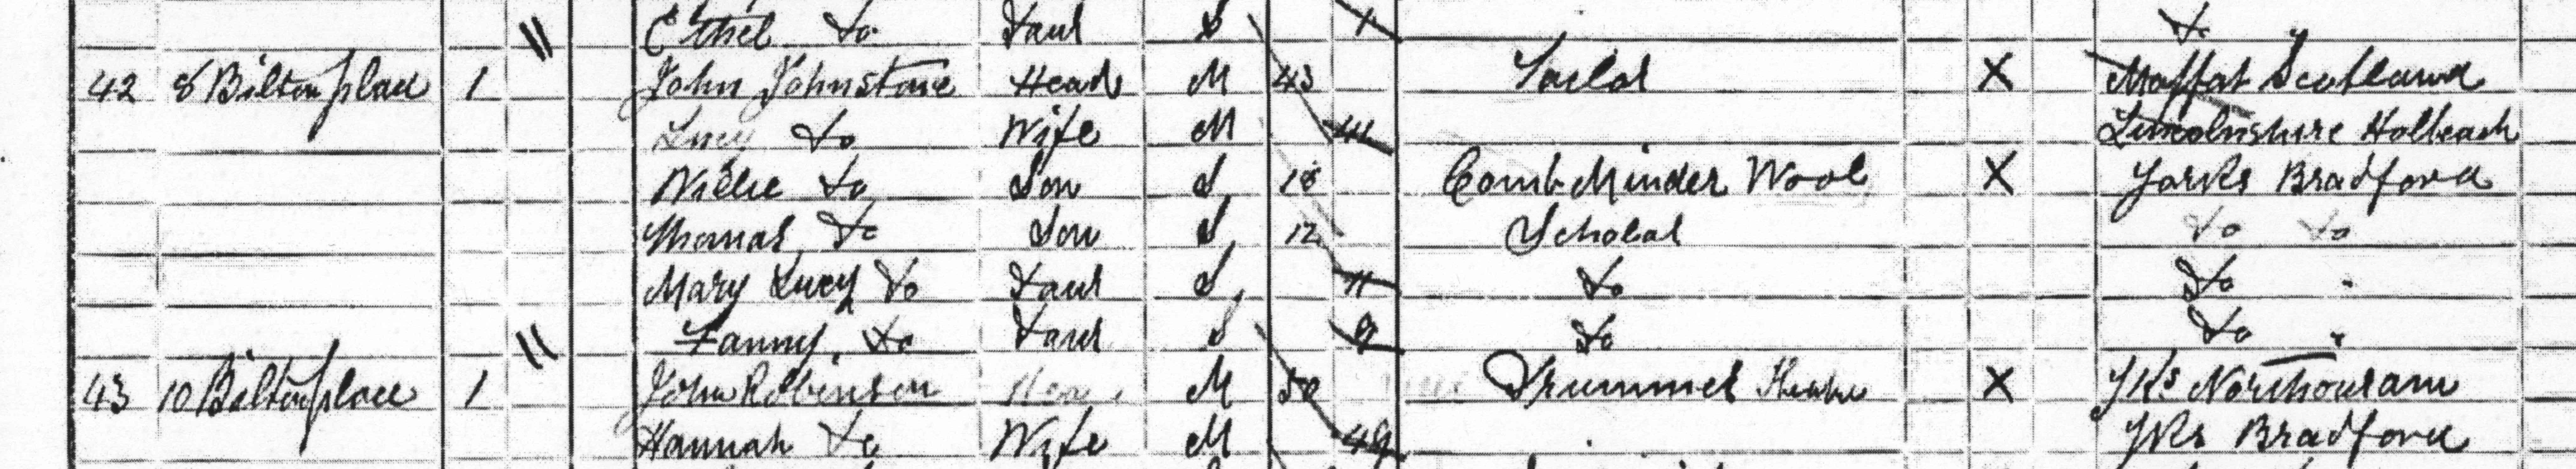 Ethel Do Daur S 1 Do
42 8 Bilton place 1 John Johnstone Head M 43 Tailor X Moffat Scotland
Lucy Do Wife M 41 Lincolnshire Holbeach
Willie Do Son S 18 Comb Minder Wool X Yorks Bradford
Thomas Do Son S 12 Scholar Do Do
Mary Lucy Do Daur S 11 Do Do
Fanny Do Daur S 9 Do Do
43 10 Bilton place 1 John Robinson Head M 50 X Yks Northouram
Hannah Do Wife M 49 Yks Bradford